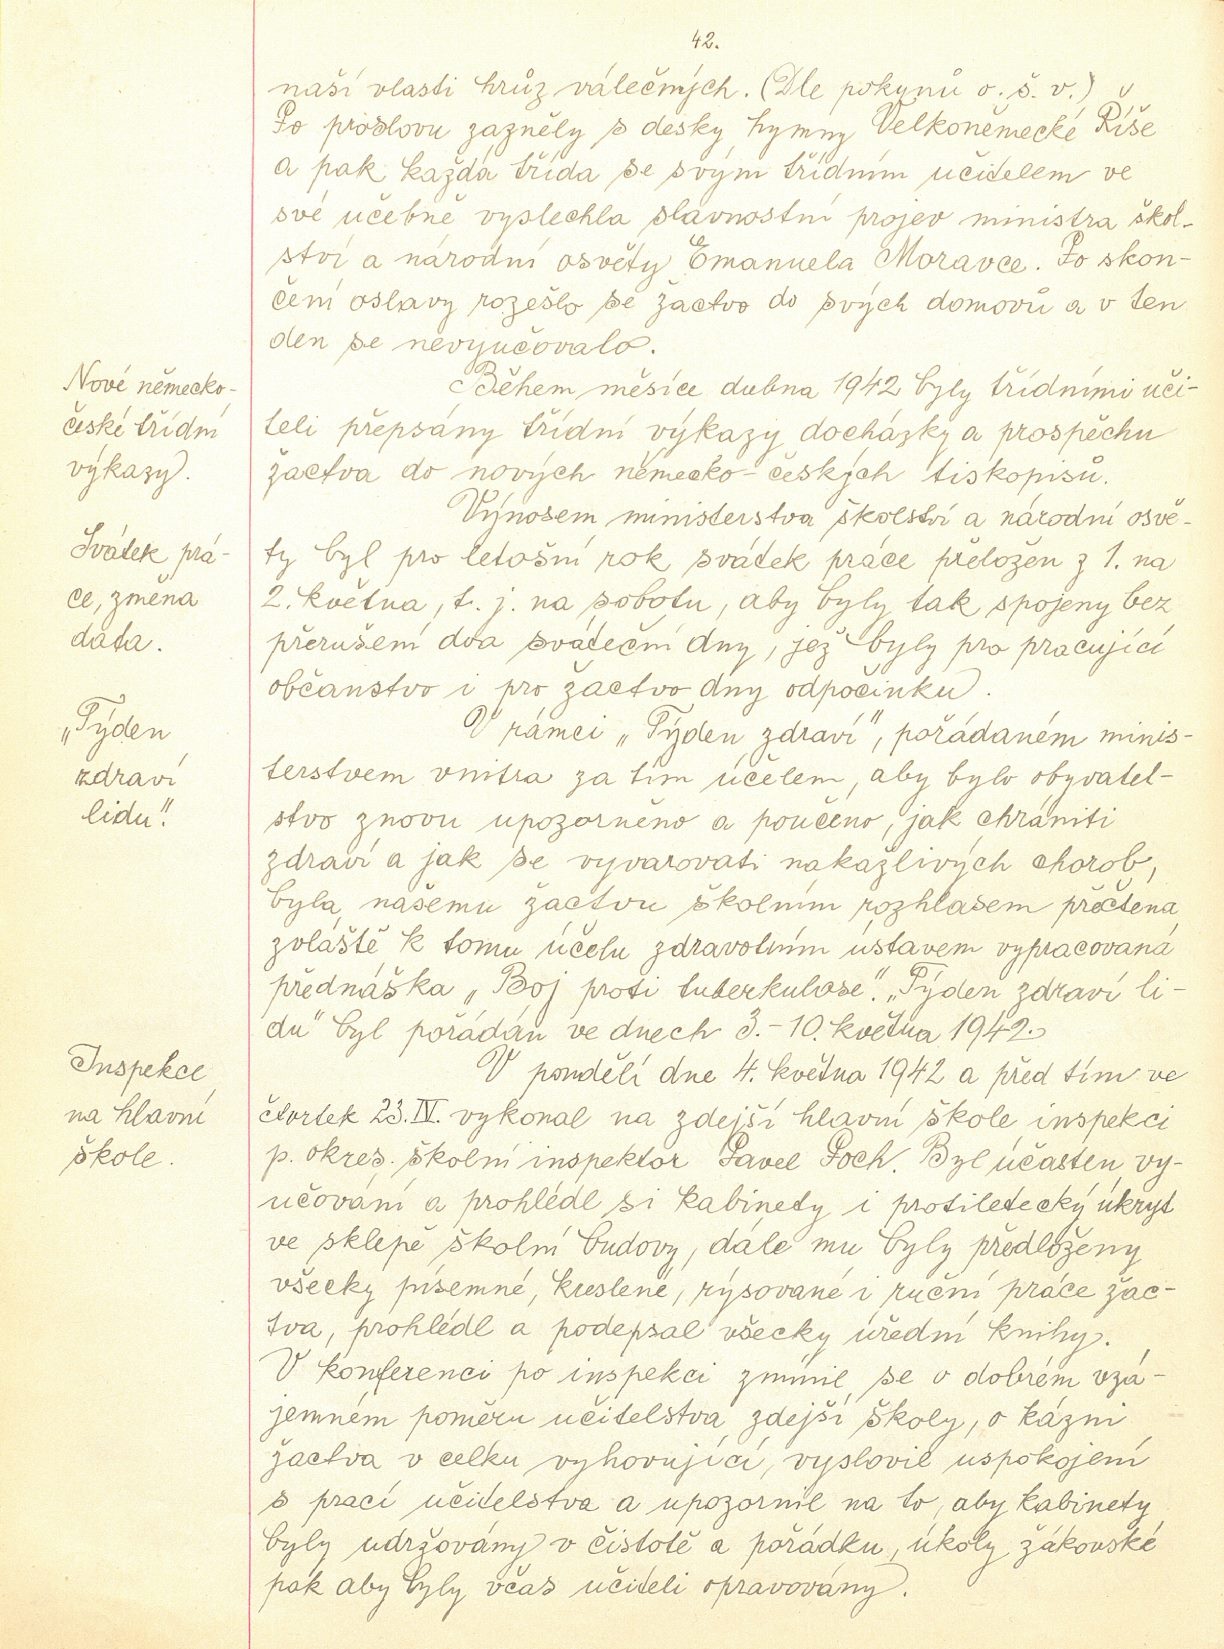 42.
naší vlasti hrůz válečných. (Dle pokynů o. š. v.)
Po proslovu zazněly s desky hymny Velkoněmecké Říše
a pak každá třída se svým třídním učitelem ve
své učebně vyslechla slavnostní projev ministra škol-
ství a národní osvěty Emanuela Moravce. Po skon-
čení oslavy rozešlo se žactvo do svých domovů a v ten
den se nevyučovalo.
Nové německo-
české třídní
výkazy.
Během měsíce dubna 1942 byly třídními uči-
teli přepsány třídní výkazy docházky a prospěchu
žactva do nových německo-českých tiskopisů.
Svátek prá-
ce, změna
data.
Výnosem ministerstva školství a národní osvě-
ty byl pro letošní rok svátek práce přeložen z 1. na
2. května, t. j. na sobotu, aby byly tak spojeny bez
přerušení dva sváteční dny, jež byly pro pracující
občanstvo i pro žactvo dny odpočinku.
„Týden
zdraví
lidu".
V rámci „Týden zdraví", pořádaném minis-
terstvem vnitra za tím účelem, aby bylo obyvatel-
stvo znovu upozorněno a poučeno, jak chrániti
zdraví a jak se vyvarovati nakažlivých chorob,
byla našemu žactvu školním rozhlasem přečtena
zvláště k tomu účelu zdravotním ústavem vypracovaná
přednáška „Boj proti tuberkulose". „Týden zdraví li-
du" byl pořádán ve dnech 3.-10. května 1942.
Inspekce
na hlavní
škole.
V pondělí dne 4. května 1942 a před tím ve
čtvrtek 23. IV. vykonal na zdejší hlavní škole inspekci
p. okres. školní inspektor Pavel Poch. Byl účasten vy-
učování a prohlédl si kabinety i protiletecký úkryt
ve sklepě školní budovy, dále mu byly předloženy
všecky písemné, kreslené, rýsované i ruční práce žac-
tva, prohlédl a podepsal všecky úřední knihy.
V konferenci po inspekci zmínil se o dobrém vzá-
jemném poměru učitelstva zdejší školy, o kázni
žactva v celku vyhovující, vyslovil uspokojení
s prací učitelstva a upozornil na to, aby kabinety
byly udržovány v čistotě a pořádku, úkoly žákovské
pak aby byly včas učiteli opravovány.